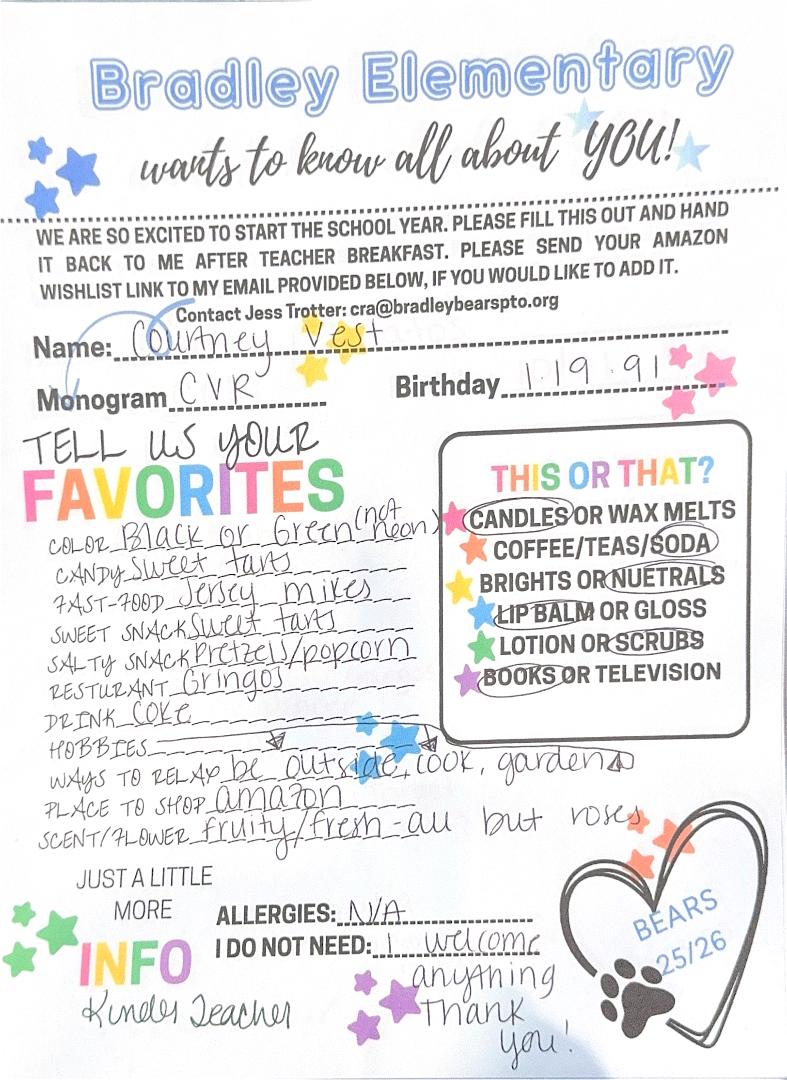 Bradley Elementary
wants to know all about YOU!
WE ARE SO EXCITED TO START THE SCHOOL YEAR. PLEASE FILL THIS OUT AND HAND
IT BACK TO ME AFTER TEACHER BREAKFAST. PLEASE SEND YOUR AMAZON
WISHLIST LINK TO MY EMAIL PROVIDED BELOW, IF YOU WOULD LIKE TO ADD IT.
Contact Jess Trotter: cra@bradleybearspto.org
Name: Courtney Vest
Monogram CVR
Birthday 1.19.91
TELL US YOUR
FAVORITES
COLOR Black or Green (not neon)
CANDY Sweet tarts
FAST-FOOD Jersey mikes
SWEET SNACK Sweet tarts
SALTY SNACK Pretzels/popcorn
RESTURANT Gringos
DRINK Coke
HOBBIES
WAYS TO RELAX be outside, cook, garden
PLACE TO SHOP amazon
SCENT/FLOWER fruity/fresh-all but roses
THIS OR THAT?
CANDLES OR WAX MELTS
COFFEE/TEAS/SODA
BRIGHTS OR NUETRALS
LIP BALM OR GLOSS
LOTION OR SCRUBS
BOOKS OR TELEVISION
JUST A LITTLE
MORE
INFO
Kinder Teacher
ALLERGIES: N/A
I DO NOT NEED: I welcome
anything
Thank
you!
BEARS
25/26